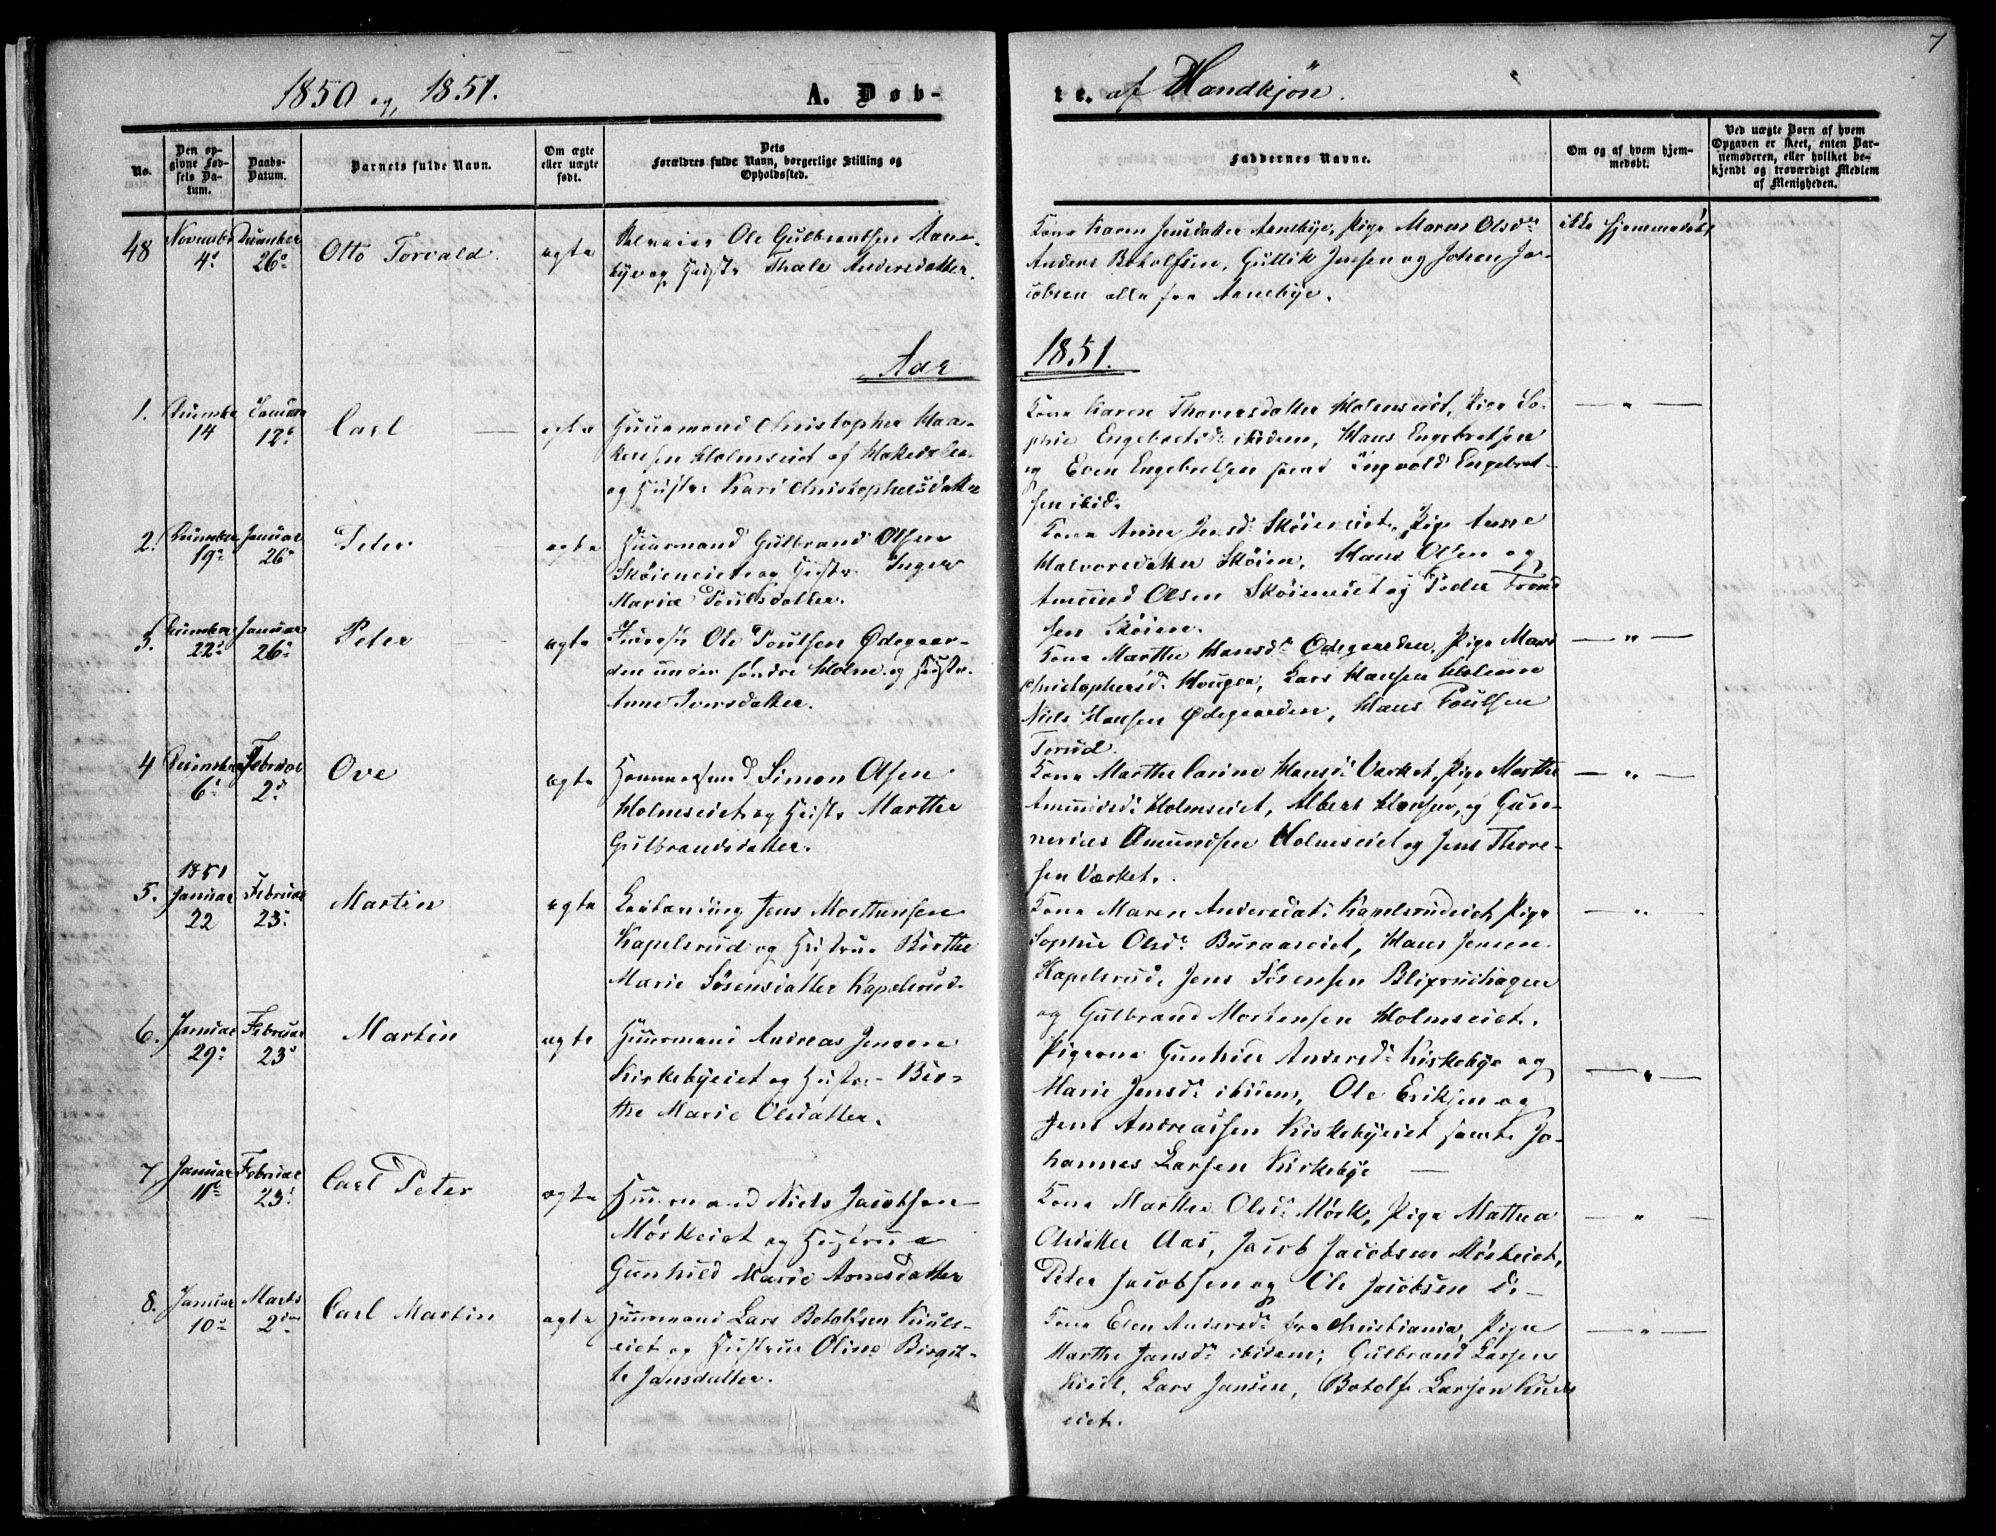 7
1850 og 1851. A. Døb-
te. af Mandkjøn.
No.
Den op-
givne Fød-
sels Da-
tum.
Daabs-
Datum.
Barnets fulde Navn.
Om ægte
eller uægte
født.
Dets
Forældres fulde Navn, borgerlige Stilling og
Opholdssted.
Faddernes Navne.
Om og af hvem hjem-
medøbt.
Ved uægte Børn af hvem
Opgaven er skeet, enten Bar-
nemoderen, eller hvilket be-
kjendt og troværdigt Medlem
af Menigheden.
48
November
4.
December
26.
Otto Torvald.
ægte
Ole Gulbrandsen Aane-
bye og Hustr. Thale Andersdatter.
Kone Karen Jensdatter Aanebye, Pige Maren Olsd.
Anders Botolfsen, Gullik Jensen og Johan Ja-
cobsen alle fra Aanebye.
ikke hjemmedøbt
Aar
1851.
1.
December
14
Januar
12.
Carl
ægte
Huusmand Christopher Haa-
kensen Holmseiet af
og Hustr. Kari Christophersdatter
Kone Karen Thoversdatter Holmseiet, Pige So-
phie Engebretsd. ibidem, Hans Engebretsen
og Even Engebretsen samt Ingvald Engebret-
sen ibid.
— " —
2.
December
19.
Januar
26.
Peter
ægte
Huusmand Gulbrand Olsen
Skøieneiet og Hustr. Inger
Maria Poulsdatter.
Kone Anne Jensd. Skøieneiet, Pige Anne
Halvorsdatter Skøien, Hans Olsen og
Amund Olsen Skøieneiet og Peder Trond
sen Skøien.
3.
December
22.
Januar
26.
Peter
ægte
Ole Poulsen Ødegaar-
den under søndre Holm og Hustr.
Anne Iversdatter.
Kone Marthe Hansd. Ødegaarden, Pige Mari
Christophersd. Hougen, Lars Hansen Holm
Niels Hansen Ødegaarden, Hans Poulsen
Torud.
— " —
4
December
6.
Februar
2.
Ove
ægte
Simon Olsen
Holmseiet og Hustr. Marthe
Gulbrandsdatter.
Kone Marthe Carine Hansd. Værket, Pige Marthe
Amundsd. Holmseiet, Albert Hansen, og Gun-
nerius Amundsen Holmseiet og Jens Thore-
sen Værket.
— " —
5.
1851
Januar
22
Februar
23.
Martin
ægte
Jens Morthensen
Kapelsrud og Hustrue Birthe
Marie Sørensdatter Kapelsrud.
Kone Maren Andersdat. Kapelsrudeiet, Pige
Sophie Olsd. Buraaseiet, Hans Jensen
Kapelsrud, Jens Sørensen Blixrudhagen
og Gulbrand Mortensen Holmseiet.
— " —
6.
Januar
29.
Februar
23.
Martin
ægte
Huusmand Andreas Jensen
Kirkebyeiet og Hustr. Bir-
the Marie Olsdatter.
Pigerne Gunhild Andersd. Kirkebye og
Marie Jensd. ibidem, Ole Eriksen og
Jens Andreassen Kirkebyeiet samt Jo-
hannes Larsen Kirkebye —
— " —
7.
Januar
11.
Februar
23.
Carl Peter
ægte
Huusmand Niels Jacobsen
Mørkeiet og Hustrue
Gunhild Marie Arnesdatter
Kone Marthe Olsd. Mørk, Pige Mathea
Olsdatter Aas, Jacob Jacobsen Mørkeiet,
Peter Jacobsen og Ole Jacobsen D. —
— " —
8.
Januar
10.
Marts
2den
Carl Martin
ægte
Huusmand Lars Botolfsen Kiuls-
eiet og Hustrue Oline Birgit-
te Jansdatter.
Kone Elen Andersd. fra Christiania, Pige
Marthe Jansd. ibidem, Gulbrand Larsen
Kiuil, Lars Jansen, Botolf Larsen Kiuls
eiet.
— " —